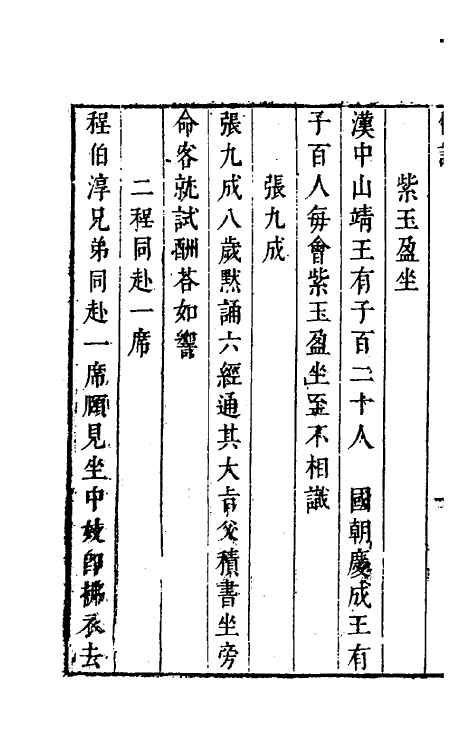 紫玉盈坐
漢中山靖王有子百二十人　國朝慶成王有
子百人每會紫玉盈坐至不相識
張九成
張九成八歲黙誦六經通其大旨父積書坐旁
命客就試酬荅如響
二程同赴一席
程伯淳兄弟同赴一席頋見坐中妓卽拂衣去